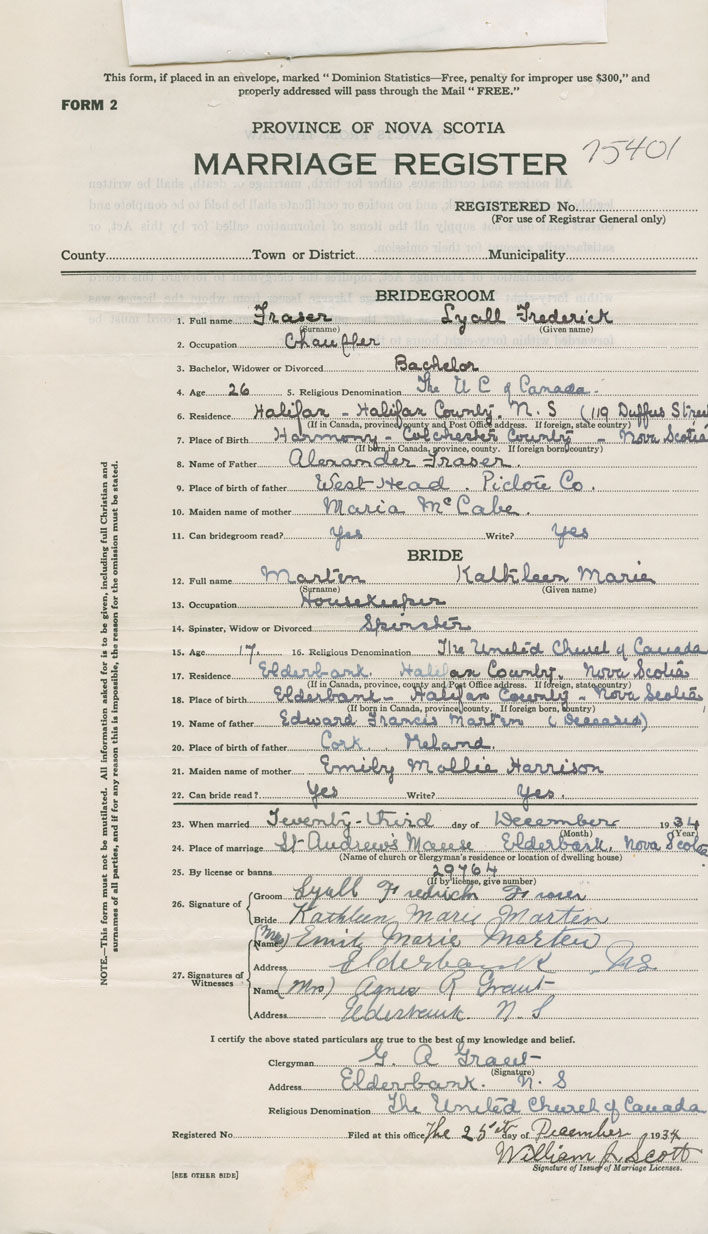 This form, if placed in an envelope, marked " Dominion Statistics—Free, penalty for improper use $300," and
properly addressed will pass through the Mail " FREE."
FORM 2
PROVINCE OF NOVA SCOTIA
MARRIAGE REGISTER 75401
REGISTERED No.
(For use of Registrar General only)
County Town or District Municipality
BRIDEGROOM
1. Full name Fraser Lyall Frederick
(Surname) (Given name)
2. Occupation Chauffer
3. Bachelor, Widower or Divorced Bachelor
4. Age 26 5. Religious Denomination The U C of Canada.
6. Residence Halifax - Halifax County. N. S (119 Duffus Street
(If in Canada, province, county and Post Office address. If foreign, state country)
7. Place of Birth Harmony - Colchester County - Nova Scotia
(If born in Canada, province, county. If foreign born, country)
8. Name of Father Alexander Fraser.
9. Place of birth of father West Head. Pictou Co.
10. Maiden name of mother Maria McCabe.
11. Can bridegroom read? Yes Write? Yes
BRIDE
12. Full name Marten Kathleen Marie
(Surname) (Given name)
13. Occupation Housekeeper
14. Spinster, Widow or Divorced Spinster
15. Age 17 16. Religious Denomination The United Church of Canada
17. Residence Elderbank. Halifax County. Nova Scotia
(If in Canada, province, county and Post Office address. If foreign, state country)
18. Place of birth Elderbank - Halifax County - Nova Scotia
(If born in Canada, province, county. If foreign born, country)
19. Name of father Edward Francis Marten (Deceased)
20. Place of birth of father Cork. Ireland.
21. Maiden name of mother Emily Mollie Harrison
22. Can bride read? Yes Write? Yes.
23. When married Twenty-third day of December 1934
(Month) (Year)
24. Place of marriage St-Andrew's Manse Elderbank, Nova Scotia
(Name of church or clergyman's residence or location of dwelling house)
25. By license or banns 29764
(If by license, give number)
26. Signature of Groom Lyall Fredrick Fraser
Bride Kathleen Marie Marten
27. Signatures of Witnesses
Name (Mrs) Emily Marie Marten
Address Elderbank N.S.
Name (Mrs) Agnes R Grant
Address Elderbank. N. S
I certify the above stated particulars are true to the best of my knowledge and belief.
Clergyman G. A Grant
(Signature)
Address Elderbank. N. S
Religious Denomination The United Church of Canada
Registered No. Filed at this office The 25th day of December 1934
William J. Scott
Signature of Issuer of Marriage Licenses.
[SEE OTHER SIDE]
NOTE.—This form must not be mutilated. All information asked for is to be given, including full Christian and
surnames of all parties, and if for any reason this is impossible, the reason for the omission must be stated.